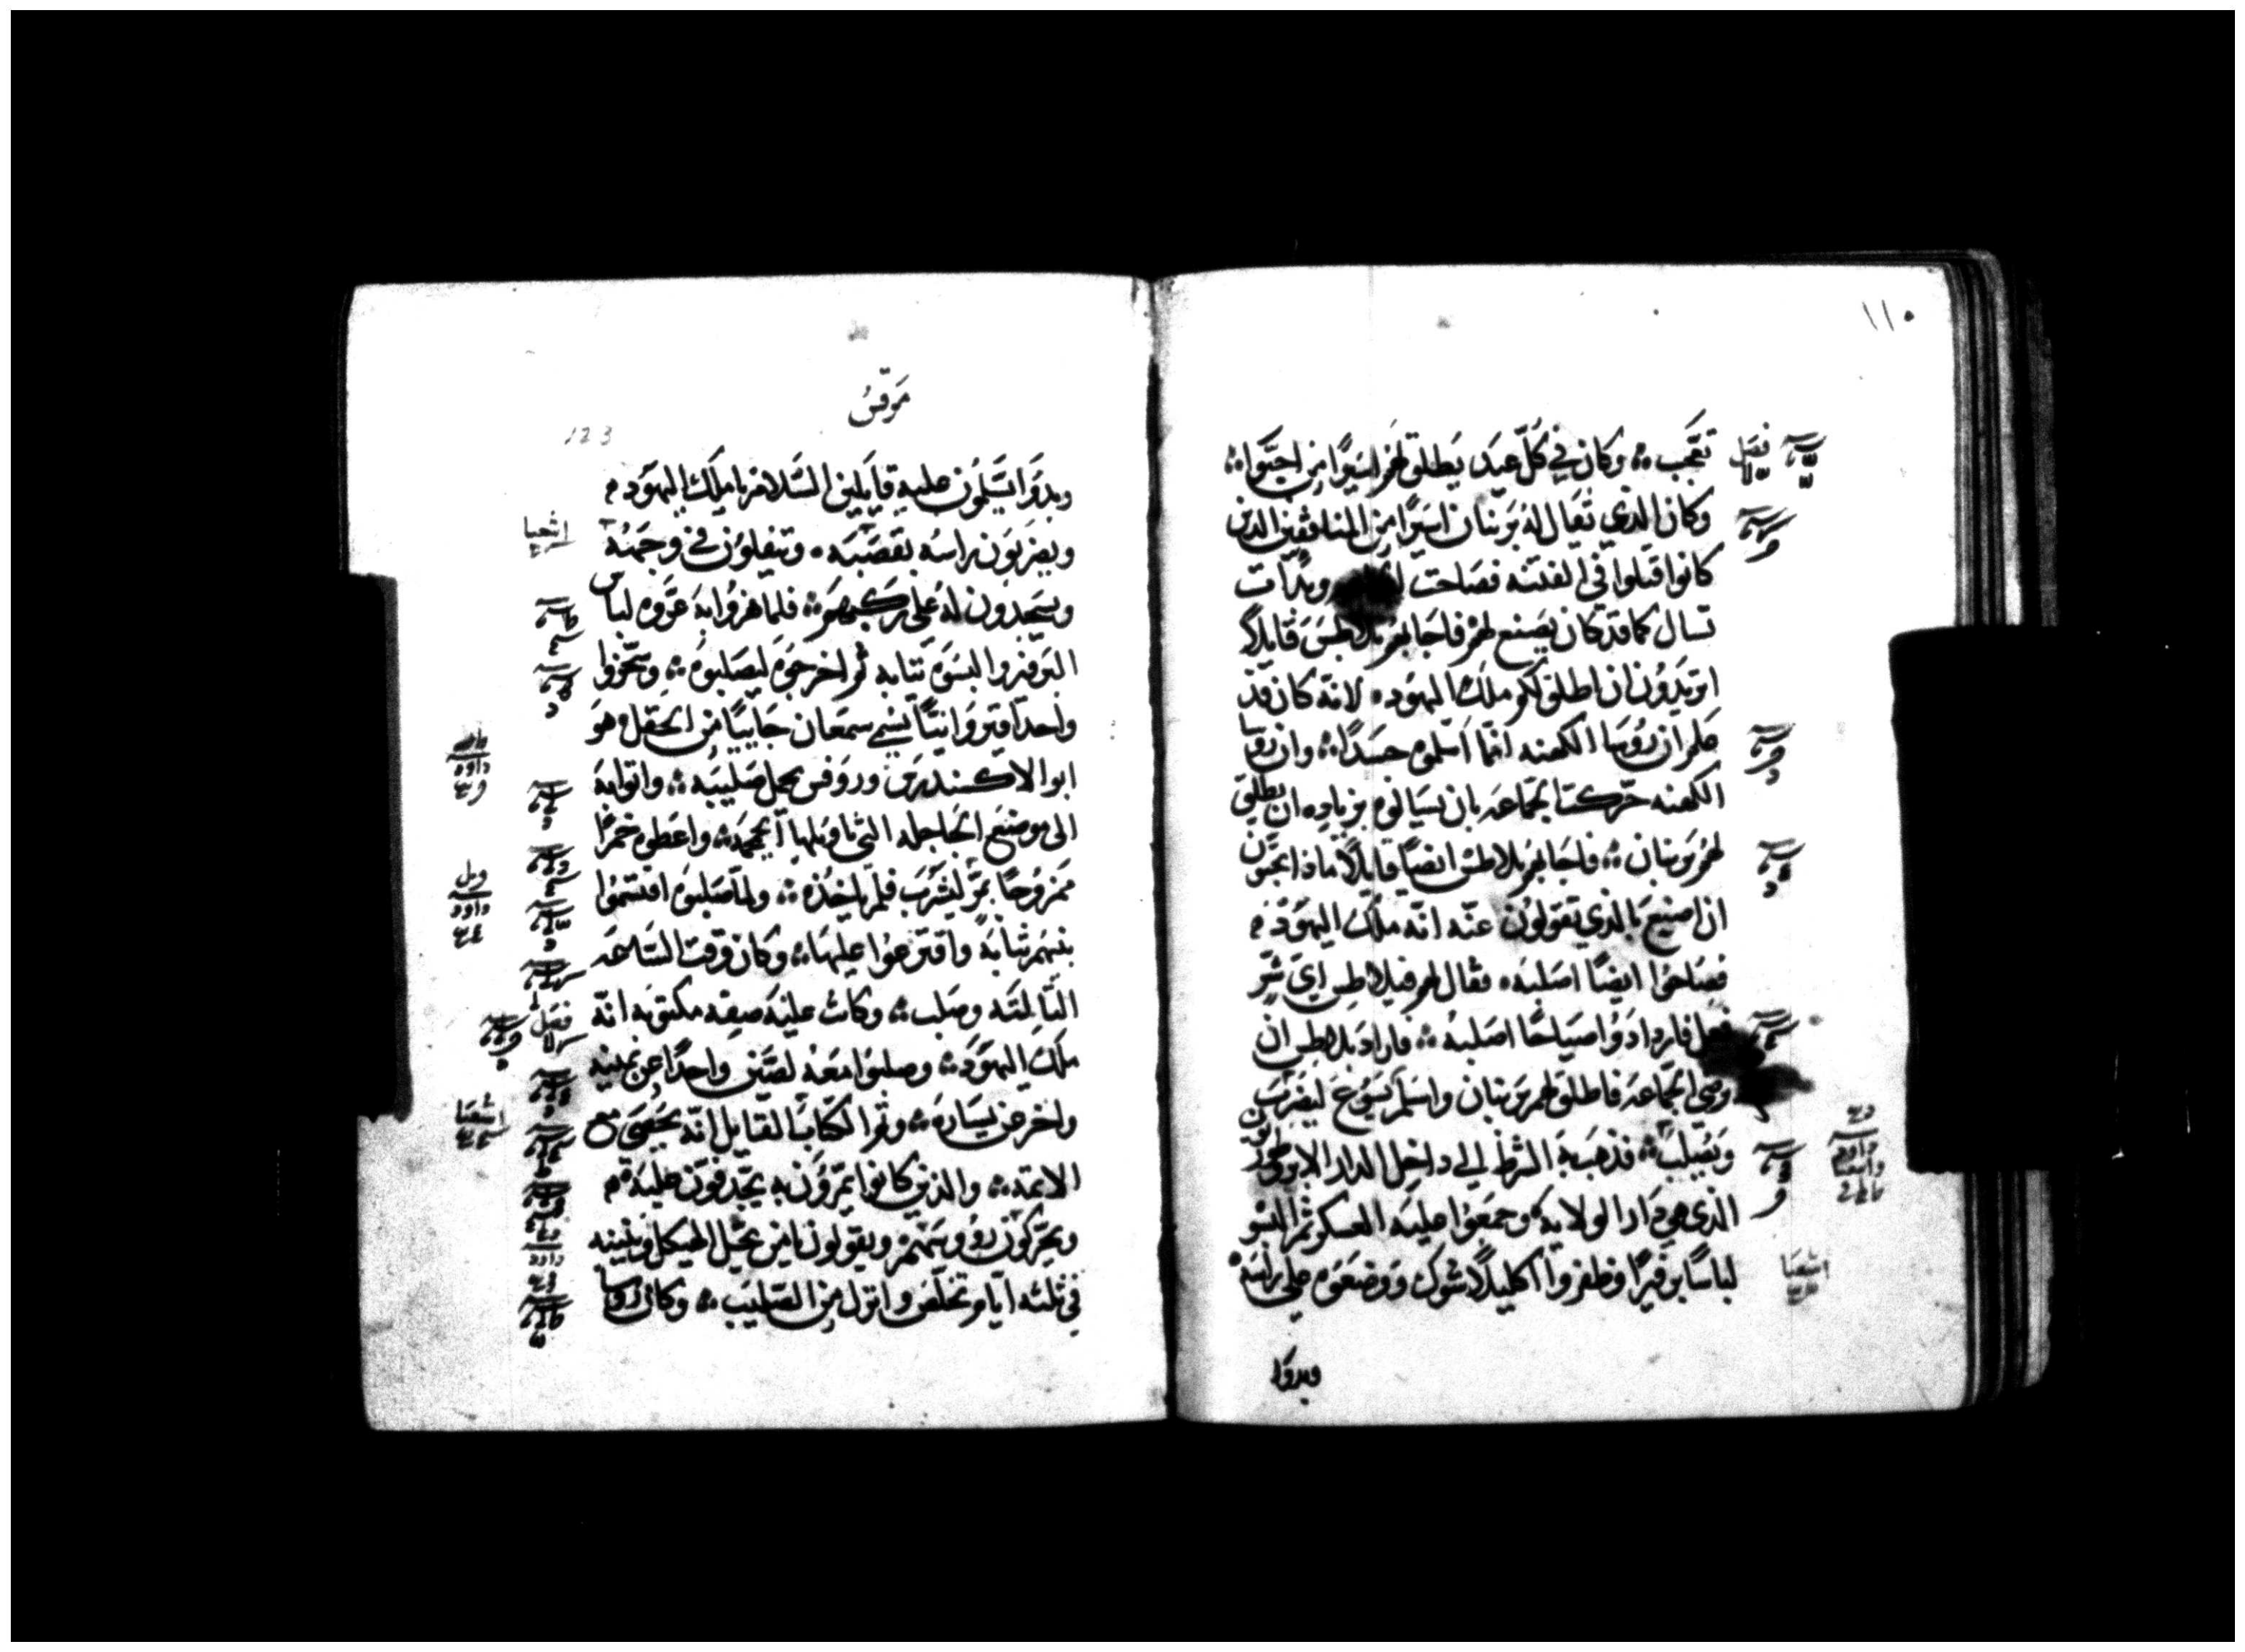 ١١٠
تعجب ۞ وكان في كل عيد يطلق لهم اسيرًا من احبوا ۞
وكان الذي يقال له بربنان اسيرًا من المنافقين الذين
كانوا قتلوا في الفتنه فصاحت وبدات
تسال كما قد كان يصنع لهم فاجابهم بلاطس قايلاً
اتريدون ان اطلق لكم ملك اليهود لانه كان قد
علم ان روسا الكهنه انما اسلموه حسدًا ۞ وان روسا
الكهنه حركت الجماعه بان يسالوه بزياده ان يطلق
لهم بربنان ۞ فاجابهم بلاطس ايضًا قايلاً ماذا تحبون
ان اصنع بالذي تقولون عنه انه ملك اليهود
فصاحوا ايضًا اصلبه فقال لهم فيلاطس اي شر
فعل فازدادوا صياحًا اصلبه ۞ فاراد بلاطس ان
يرضي الجماعه فاطلق لهم بربنان واسلم يسوع ليضرب
ويصلب ۞ فذهب به الشرط الي داخل الدار
الذي هي دار الولايه وجمعوا عليه العسكر ثم البسوه
لباسًا برفيرًا وظفروا اكليلاً شوك ووضعوه على راسه
وبدوا
فصل
اشعيا
مرقس
123
وبدوا يسلمون عليه قايلين السلام يا ملك اليهود
ويضربون راسه بقصبه وتتفلون في وجهه
ويسجدون له على ركبهم ۞ فلما هزوا به عروه لباس
البرفير والبسوه ثيابه ثم اخرجوه ليصلبوه ۞ وسخروا
واحدًا قيروانيًا يسمي سمعان جاييًا من الحقل وهو
ابو الاكسندرس وروفس بحمل صليبه ۞ واتوا به
الى موضع الجاجله التي تاويلها الجمجمه ۞ واعطوه خمرًا
ممزوجًا بمر ليشرب فلم ياخذه ۞ ولما صلبوه اقتسموا
بينهم ثيابه واقترعوا عليها ۞ وكان وقت الساعه
الثالثه وصلب ۞ وكانت عليه صيفه مكتوبه انه
ملك اليهود ۞ وصلبوا معه لصين واحدًا عن يمينه
واخر عن يساره ۞ وتم الكتاب القايل انه يحصى مع
الاثمه ۞ والذين كانوا يمرون به يجدفون عليه
ويحركون رووسهم ويقولون يا من يحل الهيكل ويبنيه
في ثلثه ايام تخلص وانزل من الصليب ۞ وكان روسا
اشعيا
داود
داود
فصل
اشعيا
داود